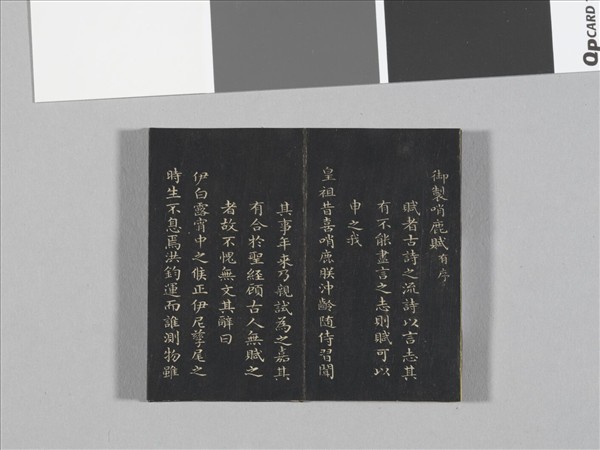 御製哨鹿賦有序
賦者古詩之流詩以言志其
有不能盡言之志則賦可以
申之我
皇祖昔喜哨鹿朕沖齡随侍習聞
其事年來乃親試為之嘉其
有合於聖經顧古人無賦之
者故不愧無文其辭曰
伊白露宵中之候正伊尼孳尾之
時生不息焉洪鈞運而誰測物雖
QpCARD